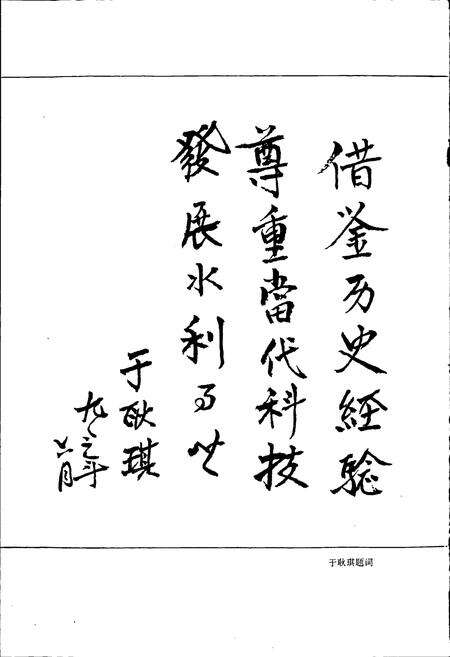 借鉴历史經驗
尊重當代科技
發展水利事业
于耿琪
六月
于耿琪题词